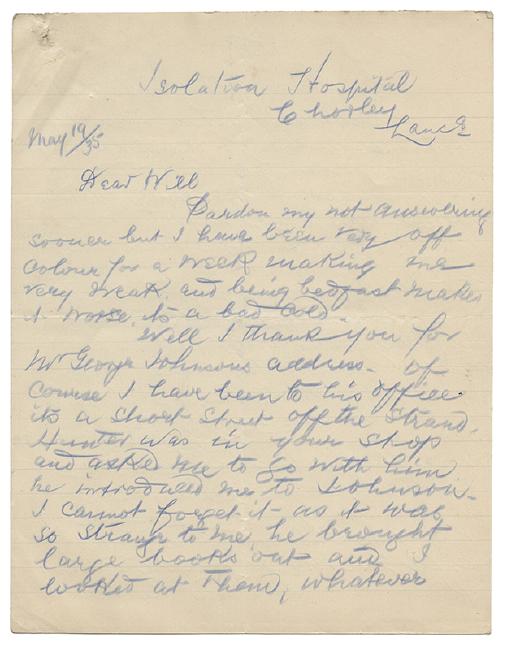 Isolation Hospital
Chorley
Lancs
May 19/35
Dear Will
Pardon my not answering
sooner but I have been very off
colour for a week making me
very weak and being bedfast makes
it worse, its a bad cold.
Well I thank you for
Mr George Johnsons address. of
course I have been to his office
its a short street off the Strand.
Hunter was in your shop
and asked me to go with him
he introduced me to Johnson.
I cannot forget it as it was
so strange to me, he brought
large books out and I
looked at them, whatever